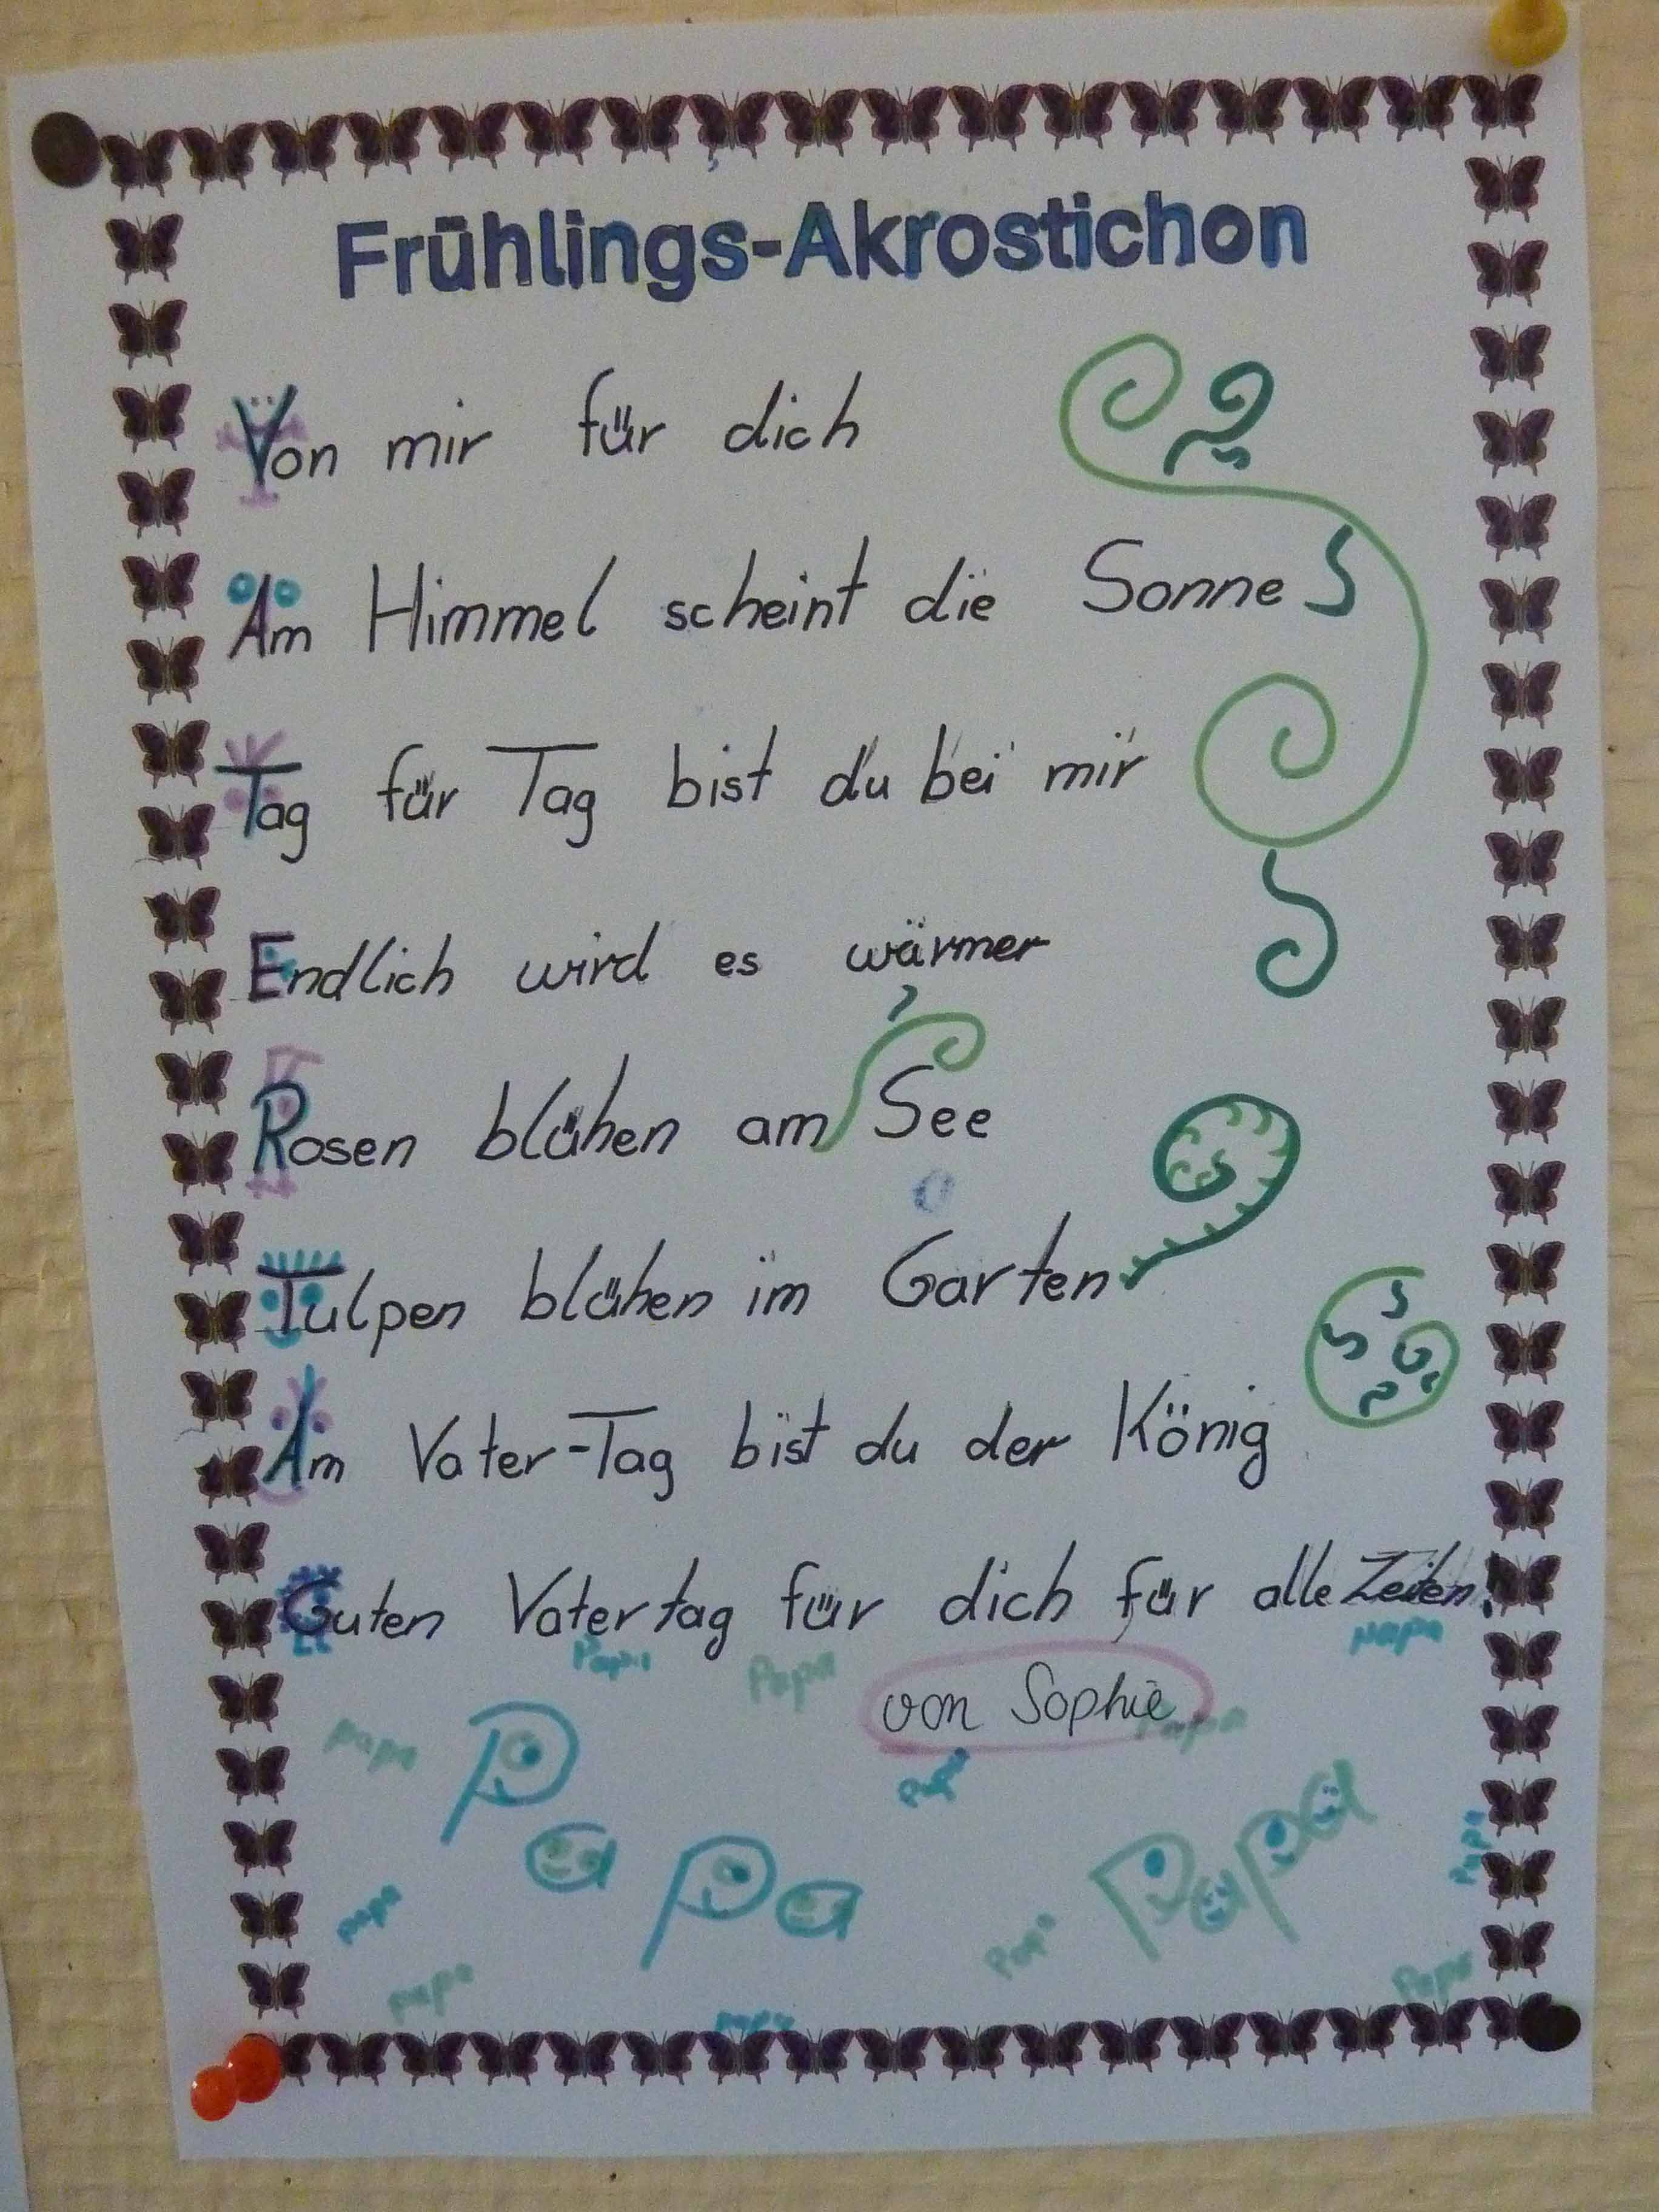 Frühlings-Akrostichon
Von mir für dich
Am Himmel scheint die Sonne
Tag für Tag bist du bei mir
Endlich wird es wärmer
Rosen blühen am See
Tulpen blühen im Garten
Am Vater-Tag bist du der König
Guten Vatertag für dich für alle Zeiten!
Papa
Papa
Papa
von Sophie
Papa
papa
Papa
Papa
Papa
Papa
papa
Papa
papa
Papa
papa